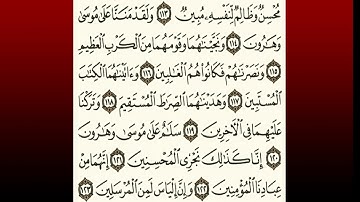 مُحْسِنٌ وَظَالِمٌ لِّنَفْسِهِۦ مُبِينٌ ١١٣ وَلَقَدْ مَنَنَّا عَلَىٰ مُوسَىٰ
وَهَٰرُونَ ١١٤ وَنَجَّيْنَٰهُمَا وَقَوْمَهُمَا مِنَ ٱلْكَرْبِ ٱلْعَظِيمِ
١١٥ وَنَصَرْنَٰهُمْ فَكَانُوا۟ هُمُ ٱلْغَٰلِبِينَ ١١٦ وَءَاتَيْنَٰهُمَا ٱلْكِتَٰبَ
ٱلْمُسْتَبِينَ ١١٧ وَهَدَيْنَٰهُمَا ٱلصِّرَٰطَ ٱلْمُسْتَقِيمَ ١١٨ وَتَرَكْنَا
عَلَيْهِمَا فِى ٱلْءَاخِرِينَ ١١٩ سَلَٰمٌ عَلَىٰ مُوسَىٰ وَهَٰرُونَ
١٢٠ إِنَّا كَذَٰلِكَ نَجْزِى ٱلْمُحْسِنِينَ ١٢١ إِنَّهُمَا مِنْ
عِبَادِنَا ٱلْمُؤْمِنِينَ ١٢٢ وَإِنَّ إِلْيَاسَ لَمِنَ ٱلْمُرْسَلِينَ ١٢٣